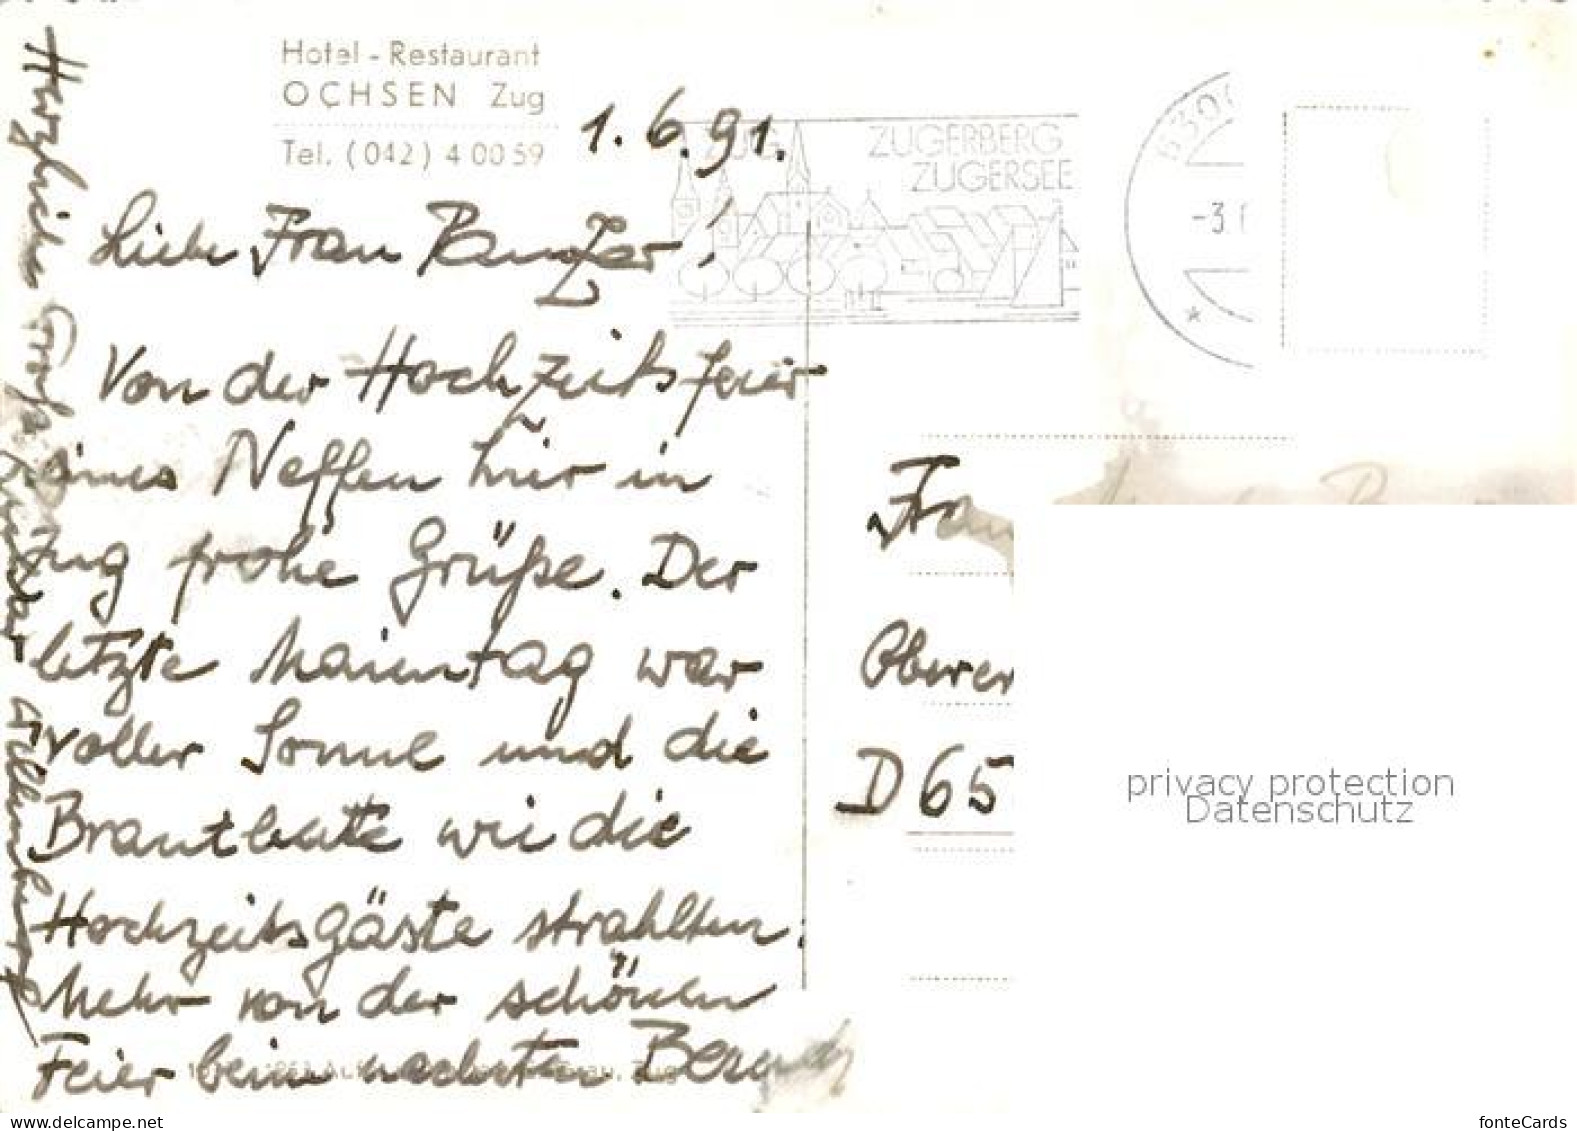 Hotel - Restaurant
OCHSEN Zug
Tel. (042) 4 00 59
1.6.91.
ZUG ZUGERBERG
ZUGERSEE
-3
Liebe Frau Panzer!
Von der Hochzeitsfeier
eines Neffen hier in
Zug frohe Grüße. Der
letzte Maientag war
voller Sonne und die
Brautleute wie die
Hochzeitsgäste strahlten.
Mehr von der schönen
Feier beim nächsten Besuch
Herzliche Grüße
Frau
Oberer
D 65
privacy protection
Datenschutz
www.delcampe.net
fonteCards